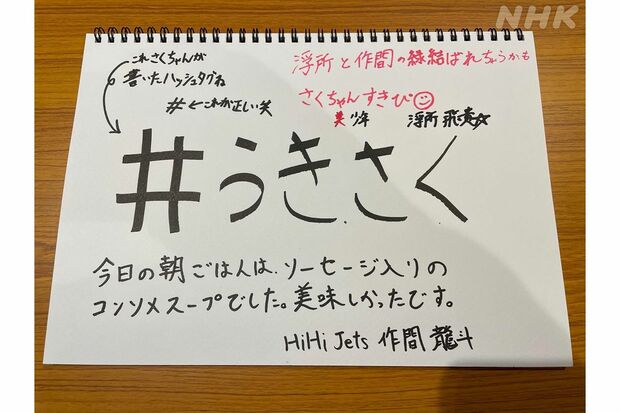 NHK
これさくちゃんが
書いたハッシュタグね
#←これが正しい笑
浮所と作間の縁結ばれちゃうかも
さくちゃんすきぴ☺
美 少年 浮所 飛貴☆
#うきさく
今日の朝ごはんは、ソーセージ入りの
コンソメスープでした。美味しかったです。
HiHi Jets 作間 龍斗